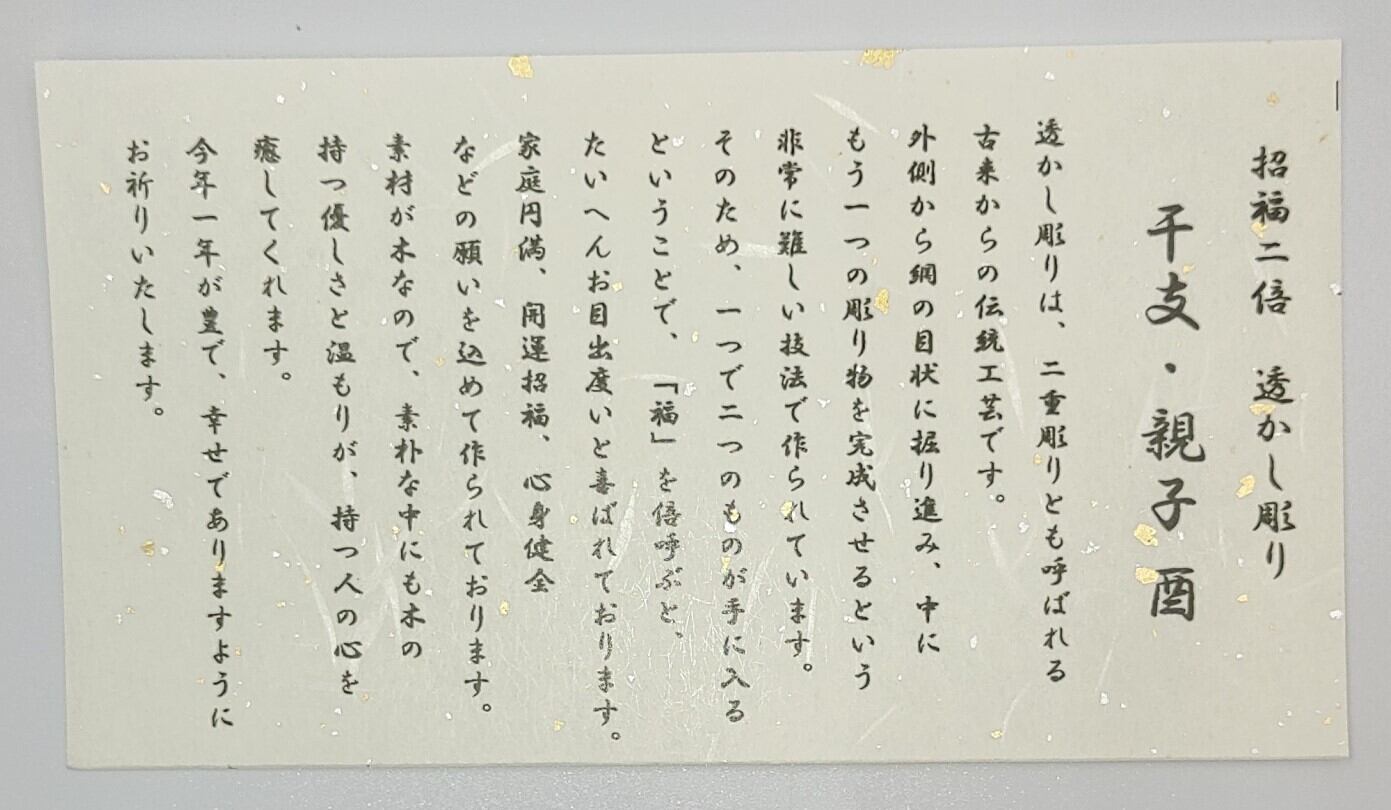 招福二倍　透かし彫り
干支・親子酉
透かし彫りは、二重彫りとも呼ばれる
古来からの伝統工芸です。
外側から網の目状に掘り進み、中に
もう一つの彫り物を完成させるという
非常に難しい技法で作られています。
そのため、一つで二つのものが手に入る
ということで、「福」を倍呼ぶと、
たいへんお目出度いと喜ばれております。
家庭円満、開運招福、心身健全
などの願いを込めて作られております。
素材が木なので、素朴な中にも木の
持つ優しさと温もりが、持つ人の心を
癒してくれます。
今年一年が豊で、幸せでありますように
お祈りいたします。